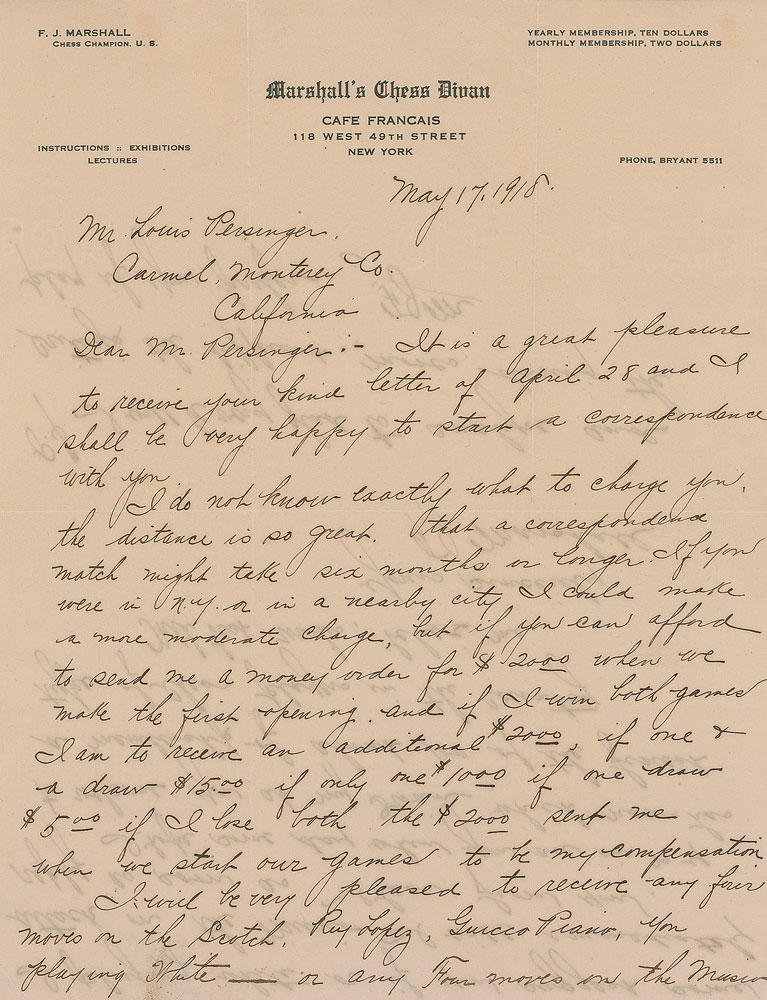 F. J. MARSHALL
CHESS CHAMPION, U. S.
YEARLY MEMBERSHIP, TEN DOLLARS
MONTHLY MEMBERSHIP, TWO DOLLARS
Marshall's Chess Divan
CAFE FRANCAIS
118 WEST 49TH STREET
NEW YORK
INSTRUCTIONS :: EXHIBITIONS
LECTURES
PHONE, BRYANT 5511
May 17, 1918.
Mr. Louis Persinger,
Carmel, Monterey Co.
California
Dear Mr. Persinger:- It is a great pleasure
to receive your kind letter of April 28 and I
shall be very happy to start a correspondence
with you.
I do not know exactly what to charge you,
the distance is so great. That a correspondence
match might take six months or longer. If you
were in N.Y. or in a nearby city I could make
a more moderate charge, but if you can afford
to send me a money order for $20.00 when we
make the first opening and if I win both games
I am to receive an additional $20.00, if one &
a draw $15.00 if only one $10.00 if one draw
$5.00 if I lose both the $20.00 sent me
when we start our games to be my compensation
I will be very pleased to receive any four
moves on the Scotch, Ruy Lopez, Guicco Piano, you
playing White — or any Four moves on the Muzio